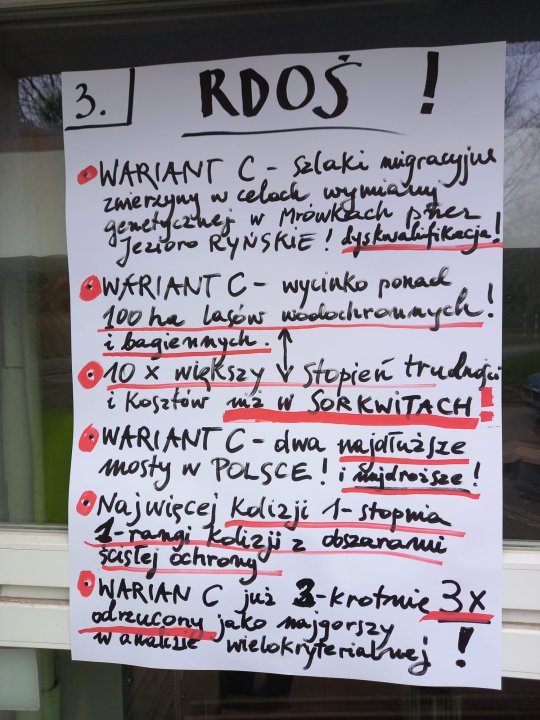 3. RDOŚ !
WARIANT C - szlaki migracyjne
zwierzyny w celach wymiany
genetycznej w Mrówkach przez
Jezioro RYŃSKIE! dyskwalifikacja!
WARIANT C - wycinka ponad
100 ha lasów wodochronnych!
i bagiennych.
10 x większy stopień trudności
i kosztów niż w SORKWITACH!
WARIANT C - dwa najdłuższe
mosty w POLSCE! i najdroższe!
Najwięcej kolizji 1-stopnia
1-rangi kolizji z obszarami
ścisłej ochrony
WARIAN C już 3-krotnie 3x
odrzucony jako najgorszy
w analizie wielokryterialnej!